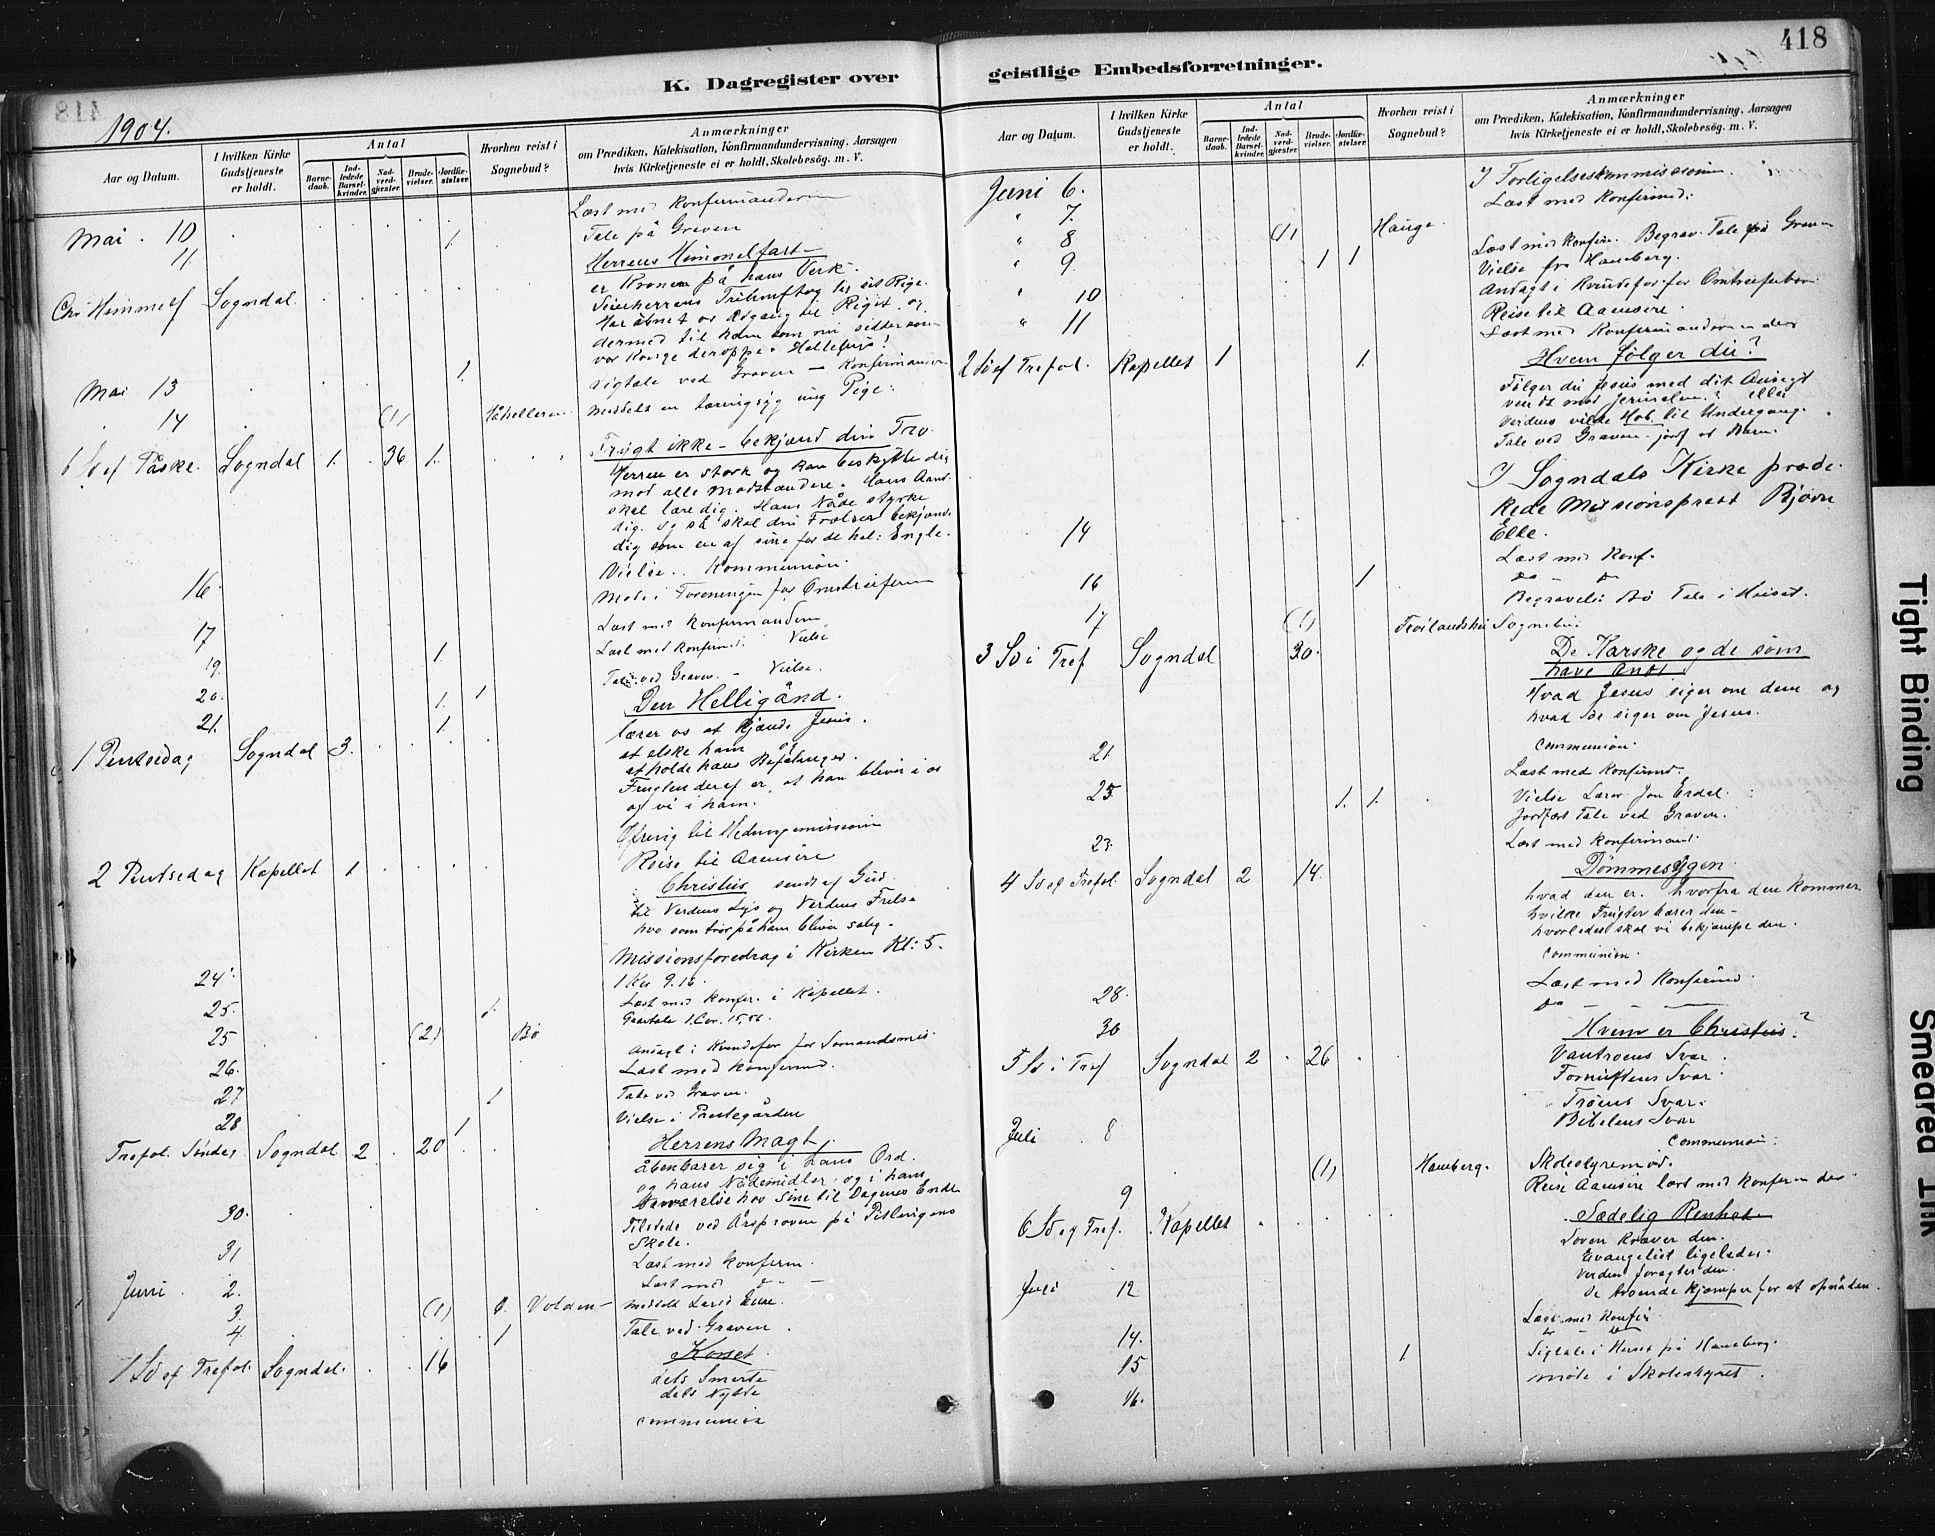 418
K. Dagregister over geistlige Embedsforretninger.
1904.
Aar og Datum.
I hvilken Kirke Gudstjeneste er holdt.
Antal
Barne-daab.
Ind-ledede Barsel-kvinder.
Nad-verd-gjæster.
Brude-vielser.
Jordfæ-stelser.
Hvorhen reist i Sognebud?
Anmærkninger
om Prædiken, Katekisation, Konfirmandundervisning, Aarsagen
hvis Kirketjeneste ei er holdt, Skolebesøg. m. V.
Læst med Konfirmanderne
Mai 10 Tale på Graven
11. 1. Herrens Himmelfart
er Kronen på hans Verk.
Chr Himmelf Sogndal. Seierherrens Triumftog til sit Rige.
Har åbnet os Adgang til Riget og
dermed til ham som nu sidder som
vor Konge deroppe. Halleluja!
Mai 13 1. Ligtale ved Graven — Konfirmanderne
14 (1) Meddelt en tæringssyg ung Pige.
6 Sd ef Påske. Sogndal 1. 36 1. Frygt ikke – bekjend din Tro.
Herren er stærk og kan beskytte dig
mod alle Modstandere. Hans Aand
skal lære dig. Hans Nåde styrke
dig. og så skal din Frelser bekjende
dig som en af sine for de hel. Engle.
Vielse. Kommunion.
16. Møde i Foreningen for Omstreiferne
17 Læst med Konfirmanderne
19. 1. Læst med Konfirmd. Vielse
20. 1. 1 Tale ved Graven. – Vielse.
21. 1. Den Helligånd.
1 Pintsedag Sogndal 3. lærer os at kjende Jesus.
at elske ham og
at holde hans Befalinger.
Frugten deraf er, at han bliver i os
og vi i ham.
Ofring til Hedningemissionen
Reise til Aaensire
2 Pintsedag Kapellet 1 Christus sendt af Gud
til Verdens Lys og Verdens Frelse
hvo som tror på ham bliver salig.
Missionsforedrag i Kirken Kl: 5.
24. 1 Kor 9.16.
25. 1. Læst med Konfir. i Kapellet.
1 Cor. 15,56.
25 (2) Bø Andagt i Kvindefor for Sømandsmis
26. Læst med Konfirmd.
27 1 Tale ved Graven.
28 1 Vielse i Prestegården
Trefol. Søndag Sogndal 2 20 Herrens Magt
åbenbarer sig i hans Ord.
og hans Nådemidler, og i hans
Nærværelse hos Sine til Dagenes Ende
30. Tilstede ved Årsprøven på
Skole.
31 Læst med Konfirm.
Juni 2. Læst med do
3. (1) Volden
4 1 Tale ved Graven.
1 Sd ef Trefol. Sogndal. 16 Korset
dets Smerte
dets Nytte
communion
Aar og Datum.
I hvilken Kirke Gudstjeneste er holdt.
Antal
Barne-daab.
Ind-ledede Barsel-kvinder.
Nad-verd-gjæster.
Brude-vielser.
Jordfæ-stelser.
Hvorhen reist i Sognebud?
Anmærkninger
om Prædiken, Katekisation, Konfirmandundervisning, Aarsagen
hvis Kirketjeneste ei er holdt, Skolebesøg. m. V.
Juni 6. I Forligelseskommissionen
7. Læst med Konfirmd.
8 (1) Hauge Læst med Konfirm. Begrav. Tale på Graven
9 1 1 Vielse fra Haneberg.
10 Andagt i Kvindefor. for Omstreiferbørn
11 Reise til Aaensire.
Læst med Konfirmanderne der
2 Sd ef Trefol. Kapellet 1 1. Hvem følger du?
Følger du Jesus med dit Ansigt
vendt mod Jerusalem? eller
Verdens vilde Hob til Undergang.
Tale ved Graven. jordf et Barn.
I Sogndals Kirke præde-
kede Missionsprest Bjørn
Elle.
14 Læst med Konf.
16 1 do – do
Begravelse Bø Tale i Huset.
17 (1) Frøilandshei Sognebud
3 Sd i Tref Sogndal 30. De Karske og de som
have ondt
Hvad Jesus siger om dem og
hvad de siger om Jesus.
communion.
21. Læst med Konfirmd.
25 1. 1. Vielse Lærer Jon Erdal.
Jordfæst Tale ved Graven.
23. Læst med Konfirmand.
4 Sd ef Trefol. Sogndal 2 14. Dømmesygen
hvad den er. hvorfra den kommer
hvilke Frugter bærer den –
hvorledes skal vi bekjæmpe den.
communion.
28. Læst med Konfirmd.
30 do
Hvem er Christus?
5 Sd i Tref Sogndal 2 26 Vantroens Svar.
Fornuftens Svar.
Troens Svar.
Bibelens Svar
Juli 8 communion.
(1) Haneberg. Skolestyremød.
9 Reise Aaensire læst med Konfirm der
6 Sd ef Tref. Kapellet Sædelig Renhet
Loven kræver den.
Evangeliet ligeledes.
Verden foragter den.
Juli 12 De troende kjæmper for at opnå den.
Læst med Konfir.
14. do – do
15 1 Ligtale i Huset på Haneberg.
16. møde i Skolestyret.
Tight Binding
Smeared Ink